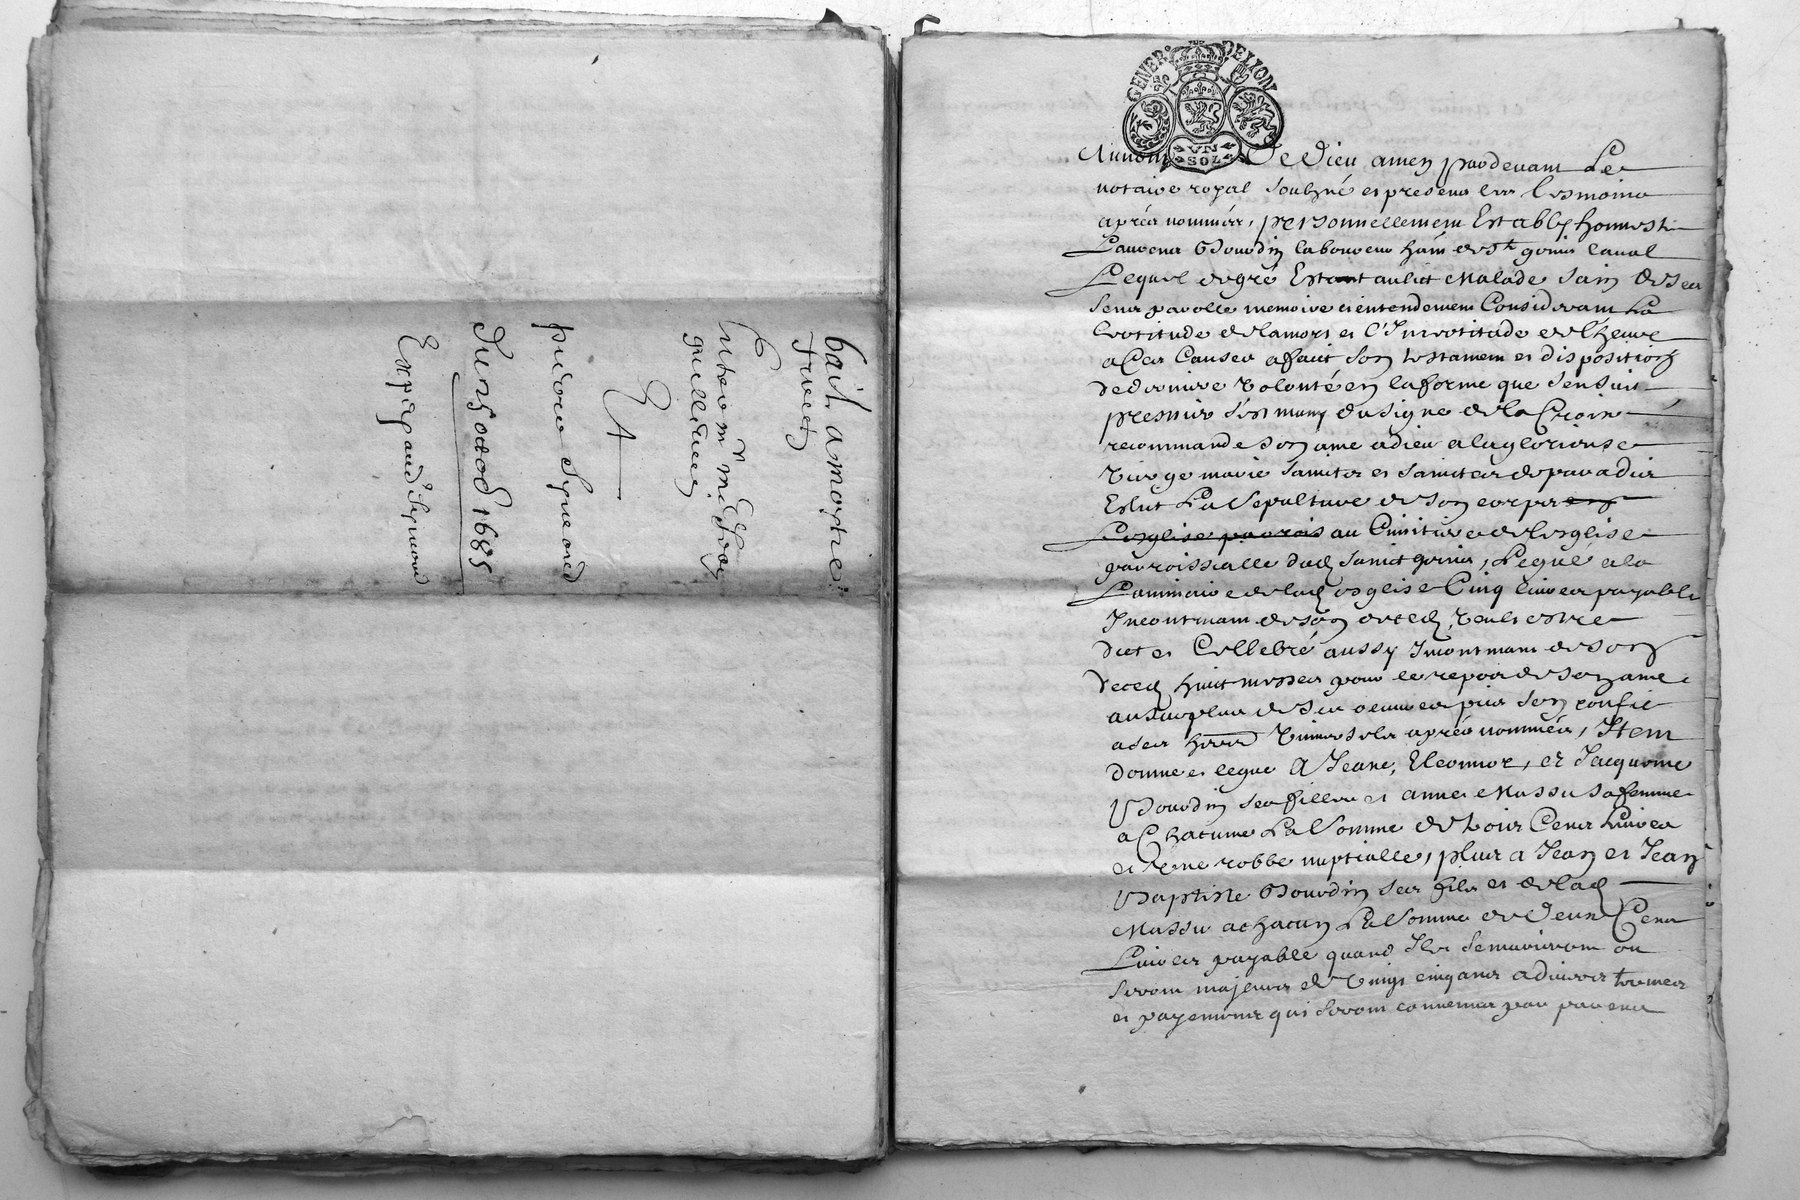 bail a moytié
fruict
Entre
Et
pierre
du 25 octob 1685
Expe
GENER. DE LION
VN
SOL
Au nom De Dieu amen pardevant Le
notaire royal soubzné et presens les tesmoins
aprés nommés, personnellement Estably honneste
Laurens Bourdin laboureur hãnt de St genis laval
Lequel de gré Estant au lict Malade sain de ses
sens parolle memoire et entendement Considerant La
certitude de la mort et l'Incertitude de l'heure
a Ces Causes a faict son testament et disposition
de derniere volonté en la forme que sensuit
premier sest muny du signe de la Croix
recommande son ame a dieu a la glorieuse
vierge marie saincts et sainctes de paradis
Eslit La sepulture de son corps en
L'esglise parrois au Cimitiere de l'esglise
parroissialle dud sainct genis, Legue a la
Luminaire de lad esglise Cinq livres payable
Incontinant de son deced, veult estre
dict et Cellebré aussy Incontinant de son
deced huict messes pour le repos de son ame
au surplus de ses oeuvres pies sen confie
a ses hers universels aprés nommés, Item
donne et legue A Jeane, Eleonnor, et Jacqueme
Bourdin ses filles et annes Massu sa femme
a Chacune La somme de trois Cens livres
et une robbe nuptialle, plus a Jean et Jean
Baptiste Bourdin ses fils et de lad
Massu a chacun La somme de deux Cens
Livres payable quand Ils se marieront ou
seront majeurs de vingt cinq ans a divers termes
et payemens qui seront convenus par parens